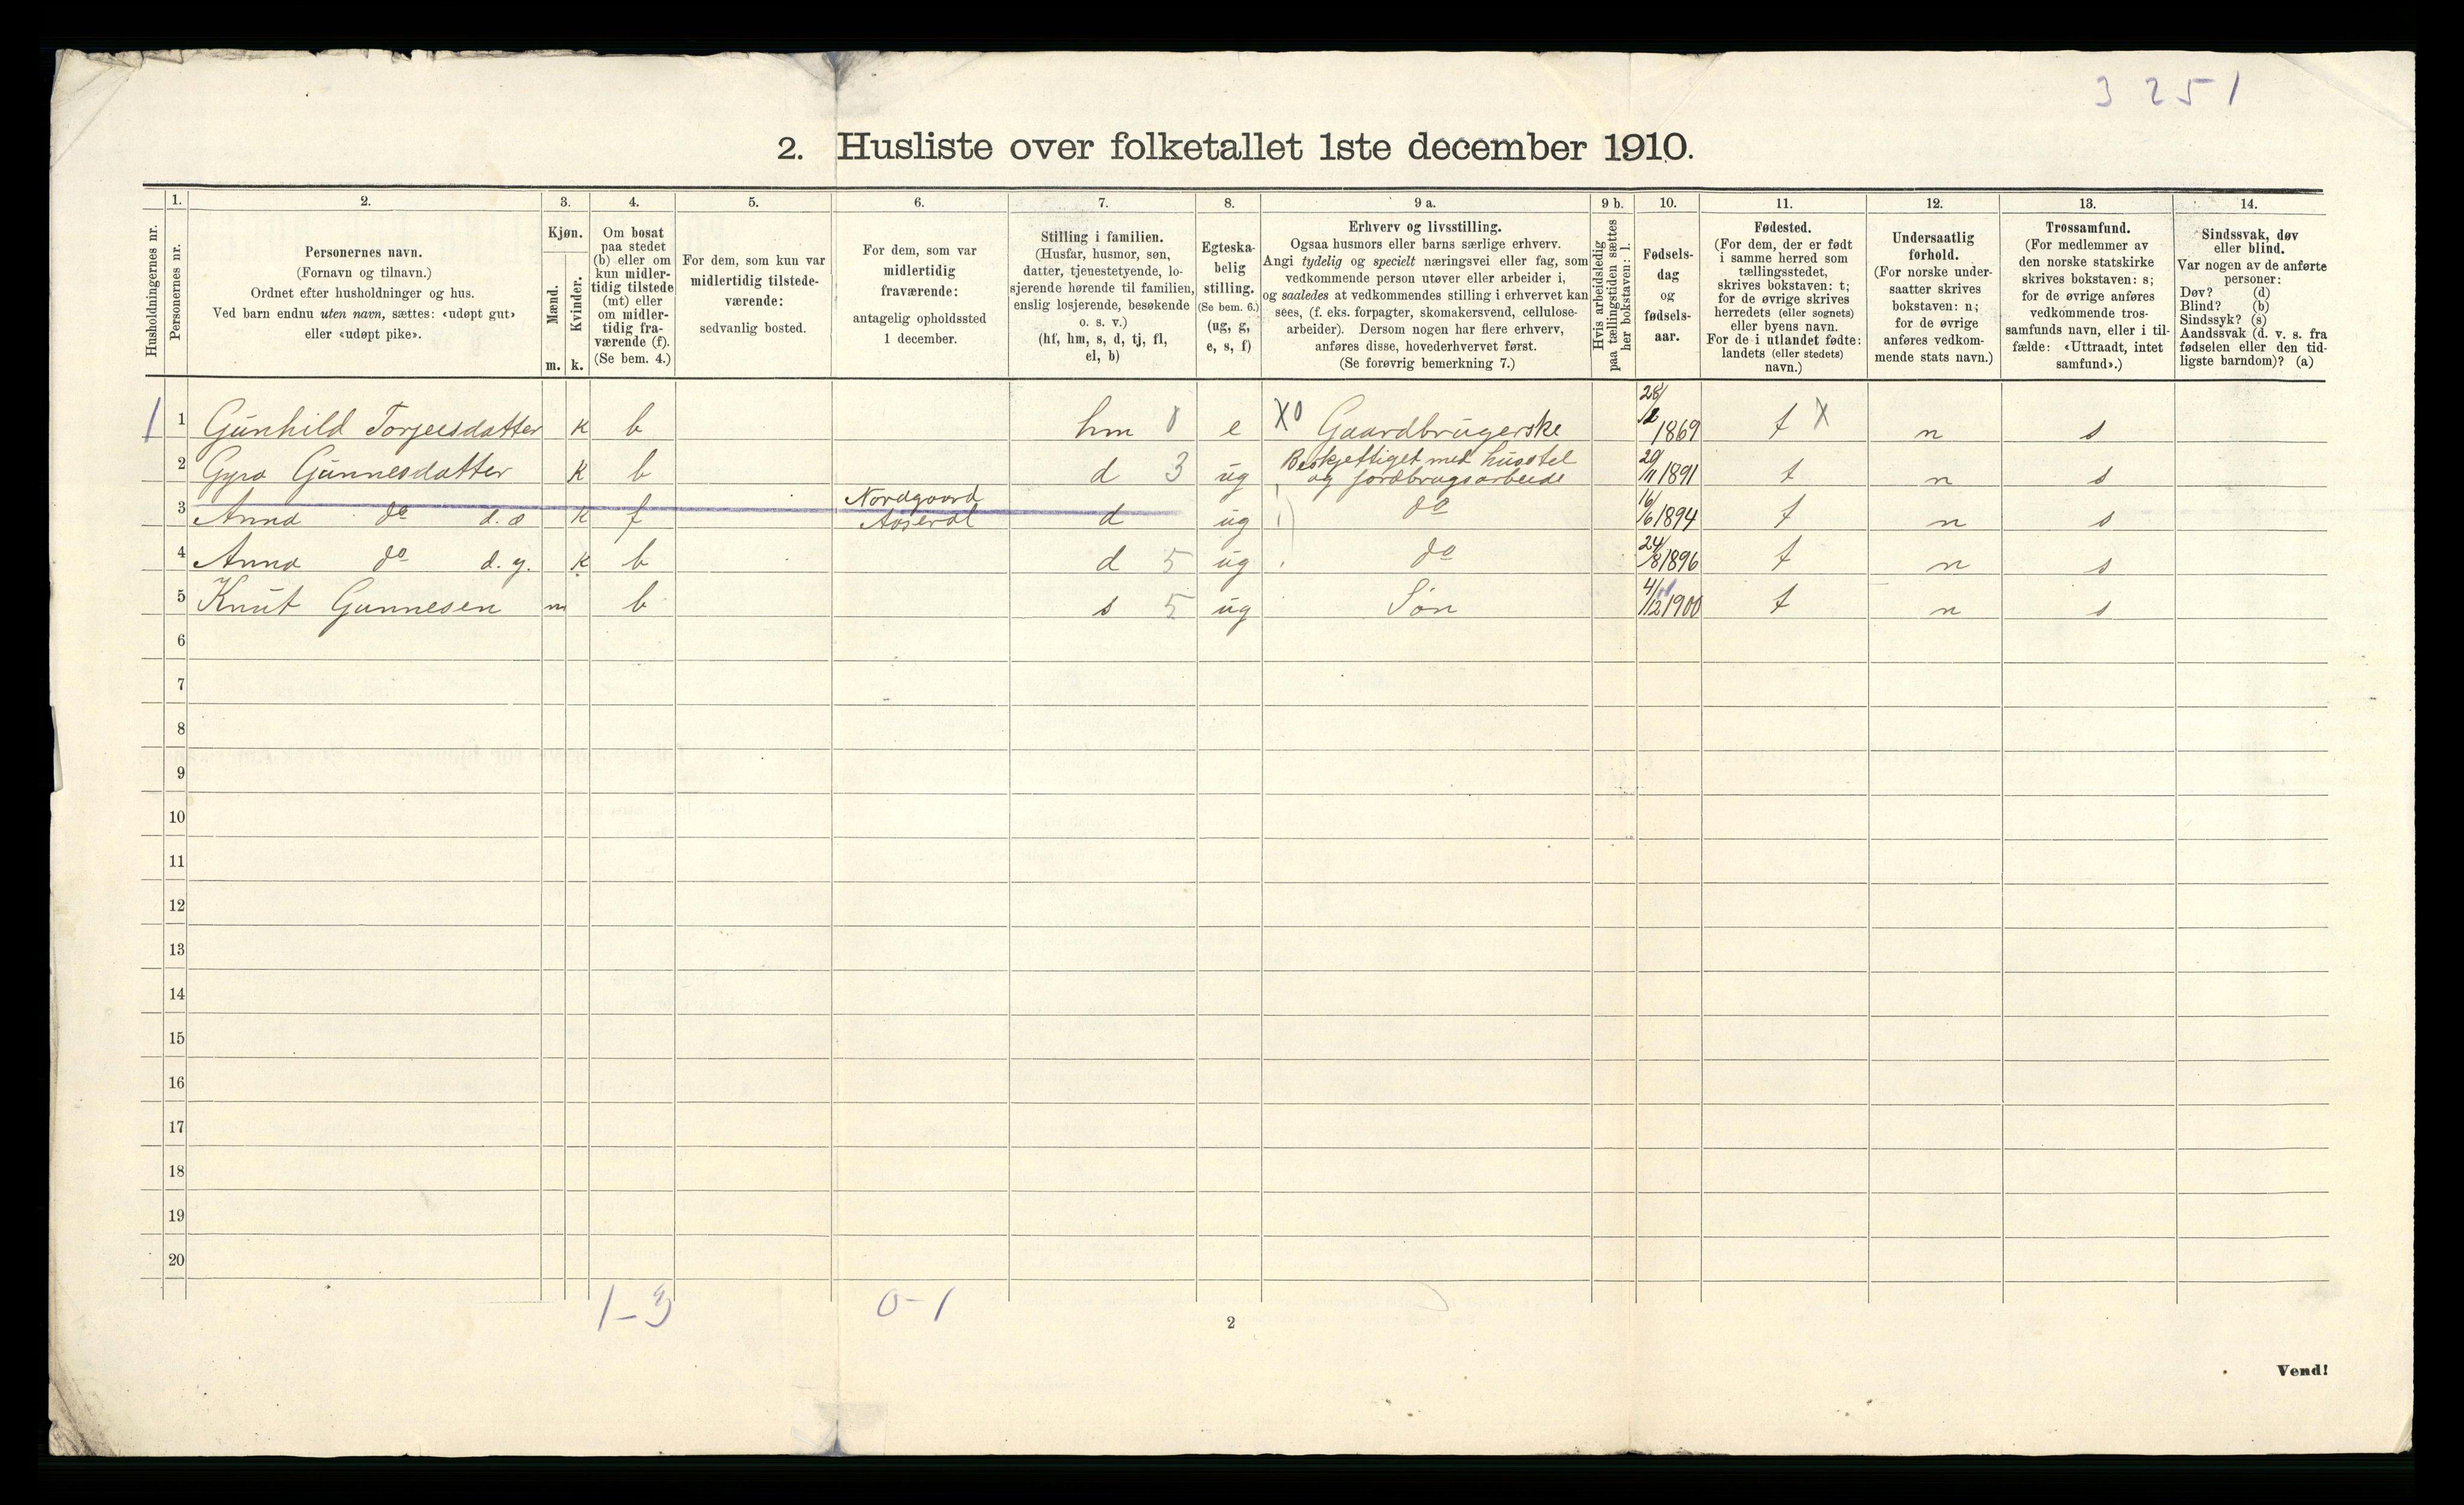 3 2 5 1
2. Husliste over folketallet 1ste december 1910.
Husholdningernes nr.
1.
Personernes nr.
2.
Personernes navn.
(Fornavn og tilnavn.)
Ordnet efter husholdninger og hus.
Ved barn endnu uten navn, sættes: «udøpt gut»
eller «udøpt pike».
3.
Kjøn.
Mænd.
Kvinder.
m. k.
4.
Om bosat
paa stedet
(b) eller om
kun midler-
tidig tilstede
(mt) eller
om midler-
tidig fra-
værende (f).
(Se bem. 4.)
5.
For dem, som kun var
midlertidig tilstede-
værende:
sedvanlig bosted.
6.
For dem, som var
midlertidig
fraværende:
antagelig opholdssted
1 december.
7.
Stilling i familien.
(Husfar, husmor, søn,
datter, tjenestetyende, lo-
sjerende hørende til familien,
enslig losjerende, besøkende
o. s. v.)
(hf, hm, s, d, tj, fl,
el, b)
8.
Egteska-
belig
stilling.
(Se bem. 6.)
(ug, g,
e, s, f)
9 a.
Erhverv og livsstilling.
Ogsaa husmors eller barns særlige erhverv.
Angi tydelig og specielt næringsvei eller fag, som
vedkommende person utøver eller arbeider i,
og saaledes at vedkommendes stilling i erhvervet kan
sees, (f. eks. forpagter, skomakersvend, cellulose-
arbeider). Dersom nogen har flere erhverv,
anføres disse, hovederhvervet først.
(Se forøvrig bemerkning 7.)
9 b.
Hvis arbeidsledig
paa tællingstiden sættes
her bokstaven: l.
10.
Fødsels-
dag
og
fødsels-
aar.
11.
Fødested.
(For dem, der er født
i samme herred som
tællingsstedet,
skrives bokstaven: t;
for de øvrige skrives
herredets (eller sognets)
eller byens navn.
For de i utlandet fødte:
landets (eller stedets)
navn.)
12.
Undersaatlig
forhold.
(For norske under-
saatter skrives
bokstaven: n;
for de øvrige
anføres vedkom-
mende stats navn.)
13.
Trossamfund.
(For medlemmer av
den norske statskirke
skrives bokstaven: s;
for de øvrige anføres
vedkommende tros-
samfunds navn, eller i til-
fælde: «Uttraadt, intet
samfund».)
14.
Sindssvak, døv
eller blind.
Var nogen av de anførte
personer:
Døv? (d)
Blind? (b)
Sindssyk? (s)
Aandssvak (d. v. s. fra
fødselen eller den tid-
ligste barndom)? (a)
1 1 Gunhild Torjeesdatter k b hm 0 e X0 Gaardbrugerske 1869 t X n s
2 Gyro Gunnesdatter k b d 3 ug Beskjeftiget med husstel
og jordbrugsarbeide 29/11 1891 t n s
3 Anna do d. æ k f Nordgaard
Aaseral d ug do 16/6 1894 t n s
4 Anna do d. y. k b d 5 ug do 24/8 1896 t n s
5 Knut Gunnesen m b s 5 ug Søn 4/12 1900 t n s
6
7
8
9
10
11
12
13
14
15
16
17
18
19
20
1-3 0-1
2
Vend!